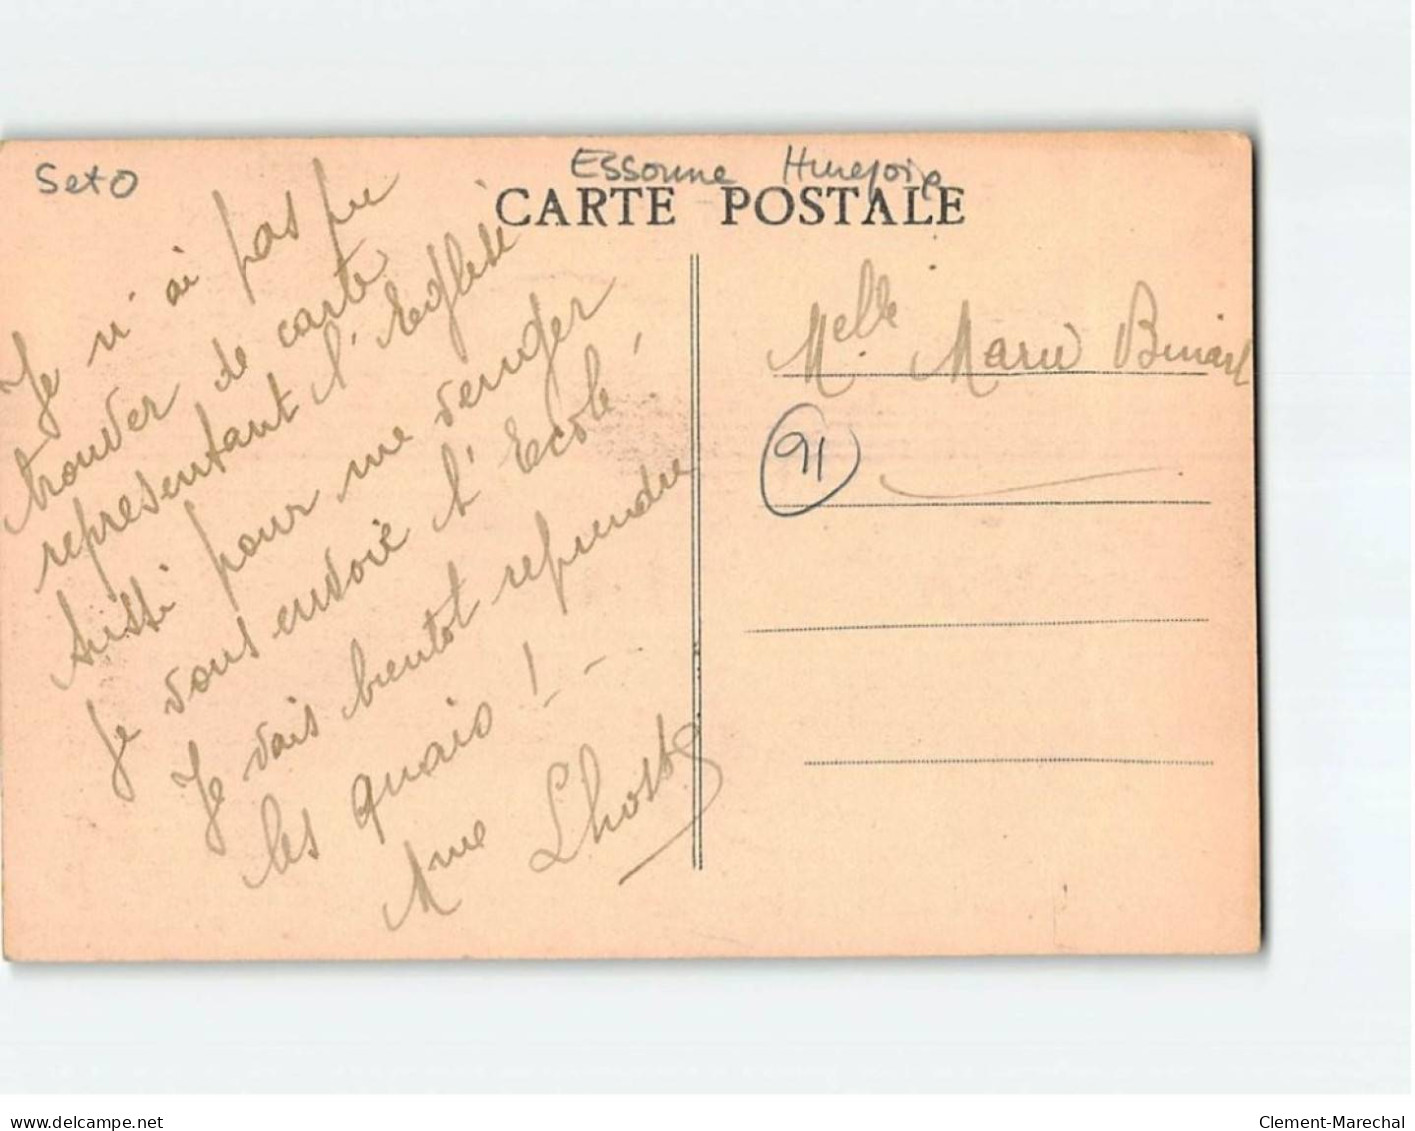 Set O
Essonne
CARTE POSTALE
Je n'ai pas pu
trouver de carte
representant l'Eglise
Aussi pour me venger
je vous envoie l'Ecole,
Je vais bientot reprendre
les quais ! -
Mme Lhoste
Melle Marie Benard
91
delcampe.net
Clement-Marechal